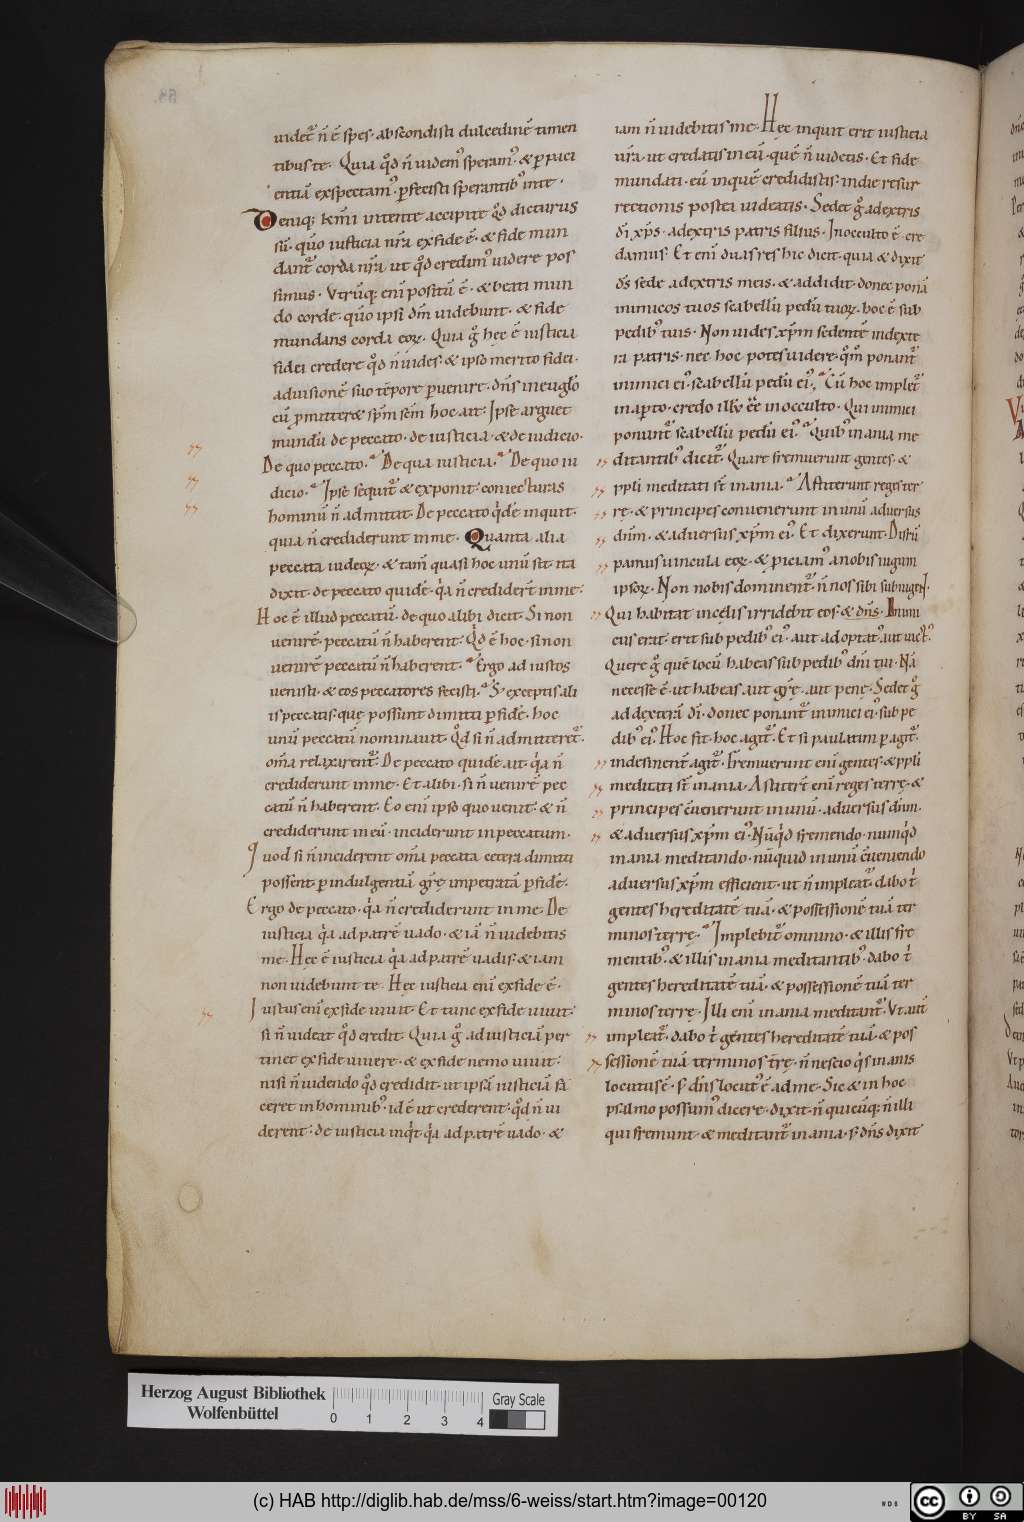 uidet᷑ n̄ ē spes· abscondisti dulcedinē timen
tibus te· Quia qd̄ n̄ uidemꝰ speramꝰ· & ꝑ paci
entiā exspectamꝰ· ꝑfecisti sperantibꝰ inte·
Deniq; km̄i intente accipite qd̄ dicturus
sū· quō iusticia nr̄a exfide ē· & fide mun
dant᷑ corda nr̄a ut qd̄ credimꝰ uidere pos
simus· Vtrūq; enī positū ē· & beati mun
do corde· quō ipsi dm̄ uidebunt· & fide
mundans corda eoꝝ· Quia g̊ hęc ē iusticia
fidei credere qd̄ n̄ uides· & ipso merito fidei·
aduisionē suo tēpore ꝑuenire· dn̄s in euglō
cū ꝓmitteret sp̄m sc̄m hoc ait· Ipse arguet
mundū de peccato· de iusticia· & de iudicio·
De quo peccato· De qua iusticia· De quo iu
dicio· Ipse sequit᷑ & exponit· coniecturas
hominū n̄ admittat· De peccato qdē inquit·
quia n̄ crediderunt in me· Quanta alia
peccata iudeoꝝ· & tam̄ quasi hoc unū sit ita
dixit· de peccato quidē· qa n̄ credidert̄ in me·
Hoc ē illud peccatū· de quo alibi dicit· Si non
uenirē· peccatū n̄ haberent· Qd̄ ē hoc· si non
uenirē peccatū n̄ haberent· Ergo ad iustos
uenisti· & eos peccatores fecisti· S; exceptis ali
is peccatis· quę possunt dimitti ꝑ fidē· hoc
unū peccatū nominauit· Qd̄ si n̄ admitteret᷑·
om̄a relaxarent᷑· De peccato quidē ait· qa n̄
crediderunt in me· Et alibi· si n̄ uenirē pec
catū n̄ haberent· Eo enī ipso quo uenit· & n̄
crediderunt in eū· inciderunt in peccatum·
Quod si n̄ inciderent om̄a peccata cetera dimitti
possent ꝑ indulgentiā gr̄ę impetratā ꝑ fidē·
Ergo de peccato· qa n̄ crediderunt in me· De
iusticia qa ad patrē uado· & iā n̄ uidebitis
me· Hęc ē iusticia qa ad patrē uadis· & iam
non uidebunt te· Hęc iusticia enī exfide ē·
Iustus enī exfide uiuit· Et tunc exfide uiuit·
si n̄ uideat qd̄ credit· Quia g̊ ad iusticiā per
tinet exfide uiuere· & exfide nemo uiuit·
nisi n̄ uidendo qd̄ credidit· ut ipsā iusticiā fa
ceret in hominibꝰ· id ē ut crederent· qd̄ n̄ ui
derent· de iusticia inqt qa ad patrē uado· &
iam n̄ uidebitis me· Hęc inquit erit iusticia
ur̄a· ut credatis in eū· quē n̄ uidetis· Et fide
mundati· eū in quē credidistis· in die resur
rectionis postea uideatis· Sedet g̊ adextris
dī xp̄s· adextris patris filius· Inocculto ē· cre
damus· Et enī duas res hic dicit· quia & dixit
ds̄ sede adextris meis· & addidit· donec ponā
inimicos tuos scabellū pedū tuoꝝ· hoc ē sub
pedibꝰ tuis· Non uides xp̄m sedentē in dexte
ra patris· nec hoc potes uidere· qm̄ ponant᷑
inimici eiꝰ scabellū pedū eiꝰ· Cū hoc implet᷑
in apto· credo illd̄ ēē in occulto· Qui inimici
ponunt᷑ scabellū pedū eiꝰ· Quibꝰ inania me
ditantibꝰ dicit᷑· Quare fremuerunt gentes· &
ppli meditati st̄ inania· Astiterunt reges ter
rę· & principes conuenerunt in unū aduersus
dn̄m· & aduersus xp̄m eiꝰ· Et dixerunt· Disrū
pamus uincula eoꝝ· & ꝓiciamꝰ anobis iugum
ipsoꝝ· Non nobis dominent᷑· n̄ nos sibi subiugent·
Qui habitat in cęlis irridebit eos· & dn̄s· Inimi
cus erat· erit sub pedibꝰ eiꝰ· aut adoptatꝰ aut uictꝰ?
Quere g̊ quē locū habeas sub pedibꝰ dn̄i tui· Nā
necesse ē· ut habeas aut gr̄ę· aut penę· Sedet g̊
ad dexterā dī· donec ponant᷑ inimici eiꝰ sub pe
dibꝰ eiꝰ· Hoc fit· hoc agit᷑· Et si paulatim ꝑagit᷑·
indesinent᷑ agit᷑· Fremuerunt enī gentes· & ppli
meditati st̄ inania· Astitert̄ enī reges terrę· &
principes cūenerunt in unū· aduersus dn̄m·
& aduersus xp̄m eiꝰ· Nūqd fremendo· nunqd
inania meditando· nūquid in unū cūeniendo
aduersus xp̄m efficient· ut n̄ impleat᷑· dabo t̄
gentes hereditatē tuā· & possessionē tuā ter
minos terrę· Implebit᷑ omnino· & illis fre
mentibꝰ· & illis inania meditantibꝰ· dabo t̄
gentes hereditatē tuā· & possessionē tuā ter
minos terrę· Illi enī inania meditant᷑· Vt aut̄
impleat᷑· dabo t̄ gentes hereditatē tuā· & pos
sessionē tuā terminos tr̄ę· n̄ nescio qs inanis
locutus ē· s; dn̄s locutꝰ ē ad me· Sic & in hoc
psalmo possumꝰ dicere· dixit· n̄ quicūq; n̄ illi
qui fremunt· & meditant᷑ inania· s; dn̄s dixit
Herzog August Bibliothek
Wolfenbüttel
0 1 2 3 4
Gray Scale
(c) HAB http://diglib.hab.de/mss/6-weiss/start.htm?image=00120
WDB
cc BY SA